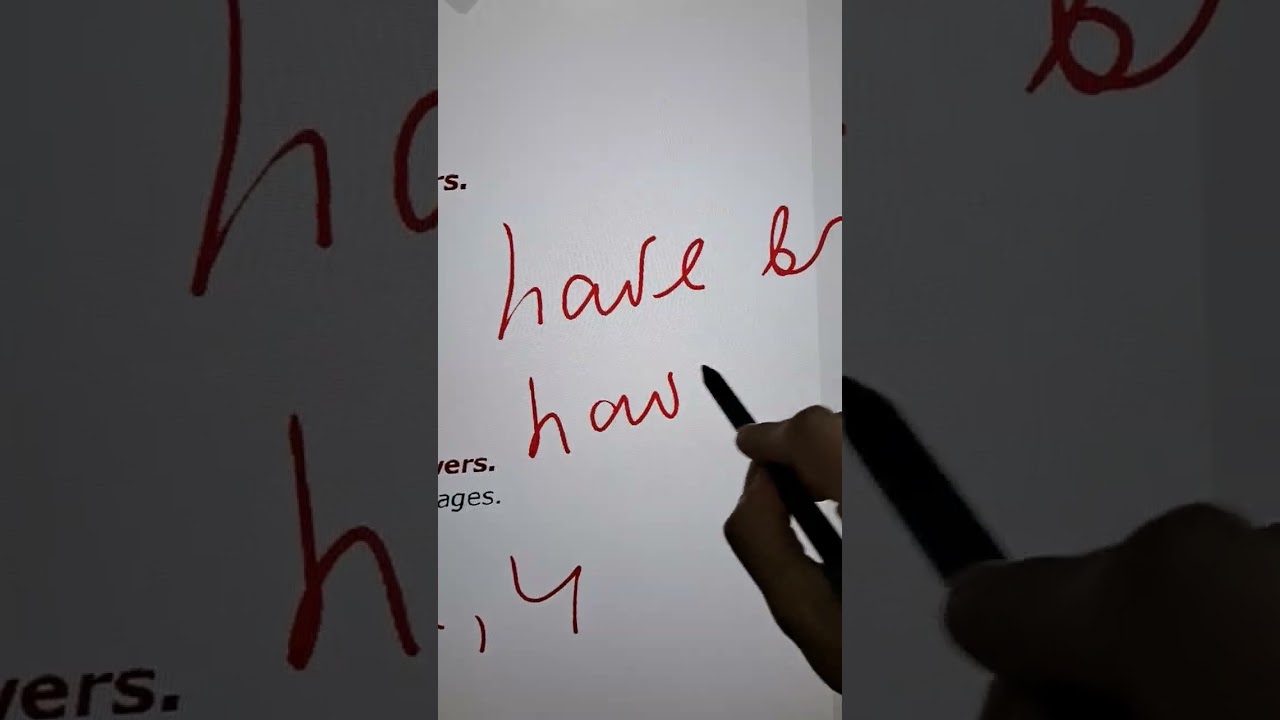 rs.
have b
hav
vers.
ages.
, 4